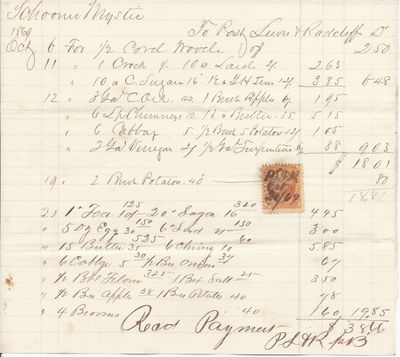 Schooner Mystic
To Post Lewis & Radcliff Dr
1869
Oct 6 For 1/2 Cord Wood 5/ 2 50
11 " 1 Crock 10 # Lard 2 63
" 10 # C. Sugar 16 1 # G H Tea 3 85 6 48
12 " 3 Gal C Oil 40 1 Bush Apples 6/ 1 95
" 6 Chimneys 10 # Butter 5 15
" 6 Cabbag 5 1/2 Bush S Potatoes 1 05
" 2 Gal Vinegar 1/2 Gal Turpentine 88 9 03
$ 18 01
19 " 2 Bush Potatoes 40 80
18 81
PL&R
Oct
/69
23 1 # Tea 125 20 # Sugar 16 320 4 45
" 5 Dz Egg 30 150 6 # Lard 150 3 00
" 15 # Butter 35 525 6 Chimy 10 60 5.85
" 6 Cabbge 5 30 1/2 Bu Onions 37 67
" 1/2 Bbl Flour 325 1 Box Salt 25 3 50
" 1/2 Bu Apples 38 1 Bu Potatoe 40 78
" 4 Brooms 40 1 60 19.85
$ 38 66
Recd Payment
PL&R